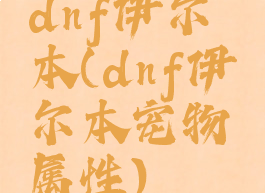 dnf伊尔
本(dnf伊
尔本宠物
属性)